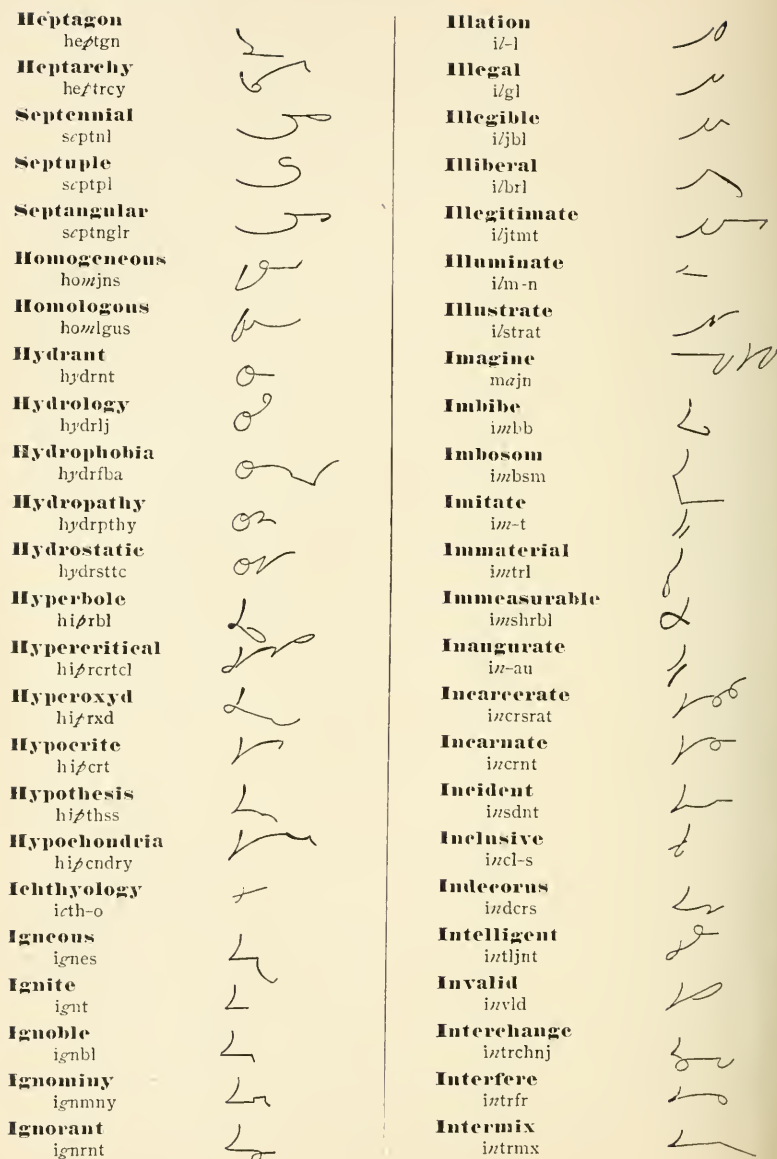 Heptagon
heptgn
Heptarchy
heptrcy
Septennial
septnl
Septuple
septpl
Septangular
septnglr
Homogeneous
homjns
Homologous
homlgus
Hydrant
hydrnt
Hydrology
hydrlj
Hydrophobia
hydrfba
Hydropathy
hydrpthy
Hydrostatic
hydrsttc
Hyperbole
hiprbl
Hypercritical
hiprcrtcl
Hyperoxyd
hiprxd
Hypocrite
hipcrt
Hypothesis
hipthss
Hypochondria
hipcndry
Ichthyology
icth-o
Igneous
ignes
Ignite
ignt
Ignoble
ignbl
Ignominy
ignmny
Ignorant
ignrnt
Illation
il-l
Illegal
ilgl
Illegible
iljbl
Illiberal
ilbrl
Illegitimate
iljtmt
Illuminate
ilm-n
Illustrate
ilstrat
Imagine
majn
Imbibe
imbb
Imbosom
imbsm
Imitate
im-t
Immaterial
imtrl
Immeasurable
imshrbl
Inaugurate
in-au
Incarcerate
incrsrat
Incarnate
incrnt
Incident
insdnt
Inclusive
incl-s
Indecorus
indcrs
Intelligent
intljnt
Invalid
invld
Interchange
intrchnj
Interfere
intrfr
Intermix
intrmx